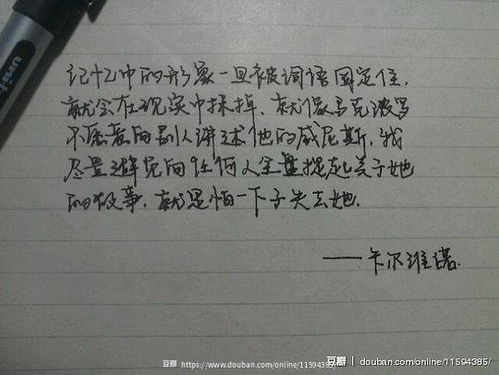 uni
记忆中的形象一旦被词语固定住，
就会在现实中抹掉，就像马克波罗
不愿意向别人讲述他的威尼斯，我
尽量避免向任何人全盘提起关于她
的故事，就是怕一下子失去她.
——卡尔维诺.
豆瓣 https://www.douban.com/online/11594385/
豆瓣 | douban.com/online/11594385/